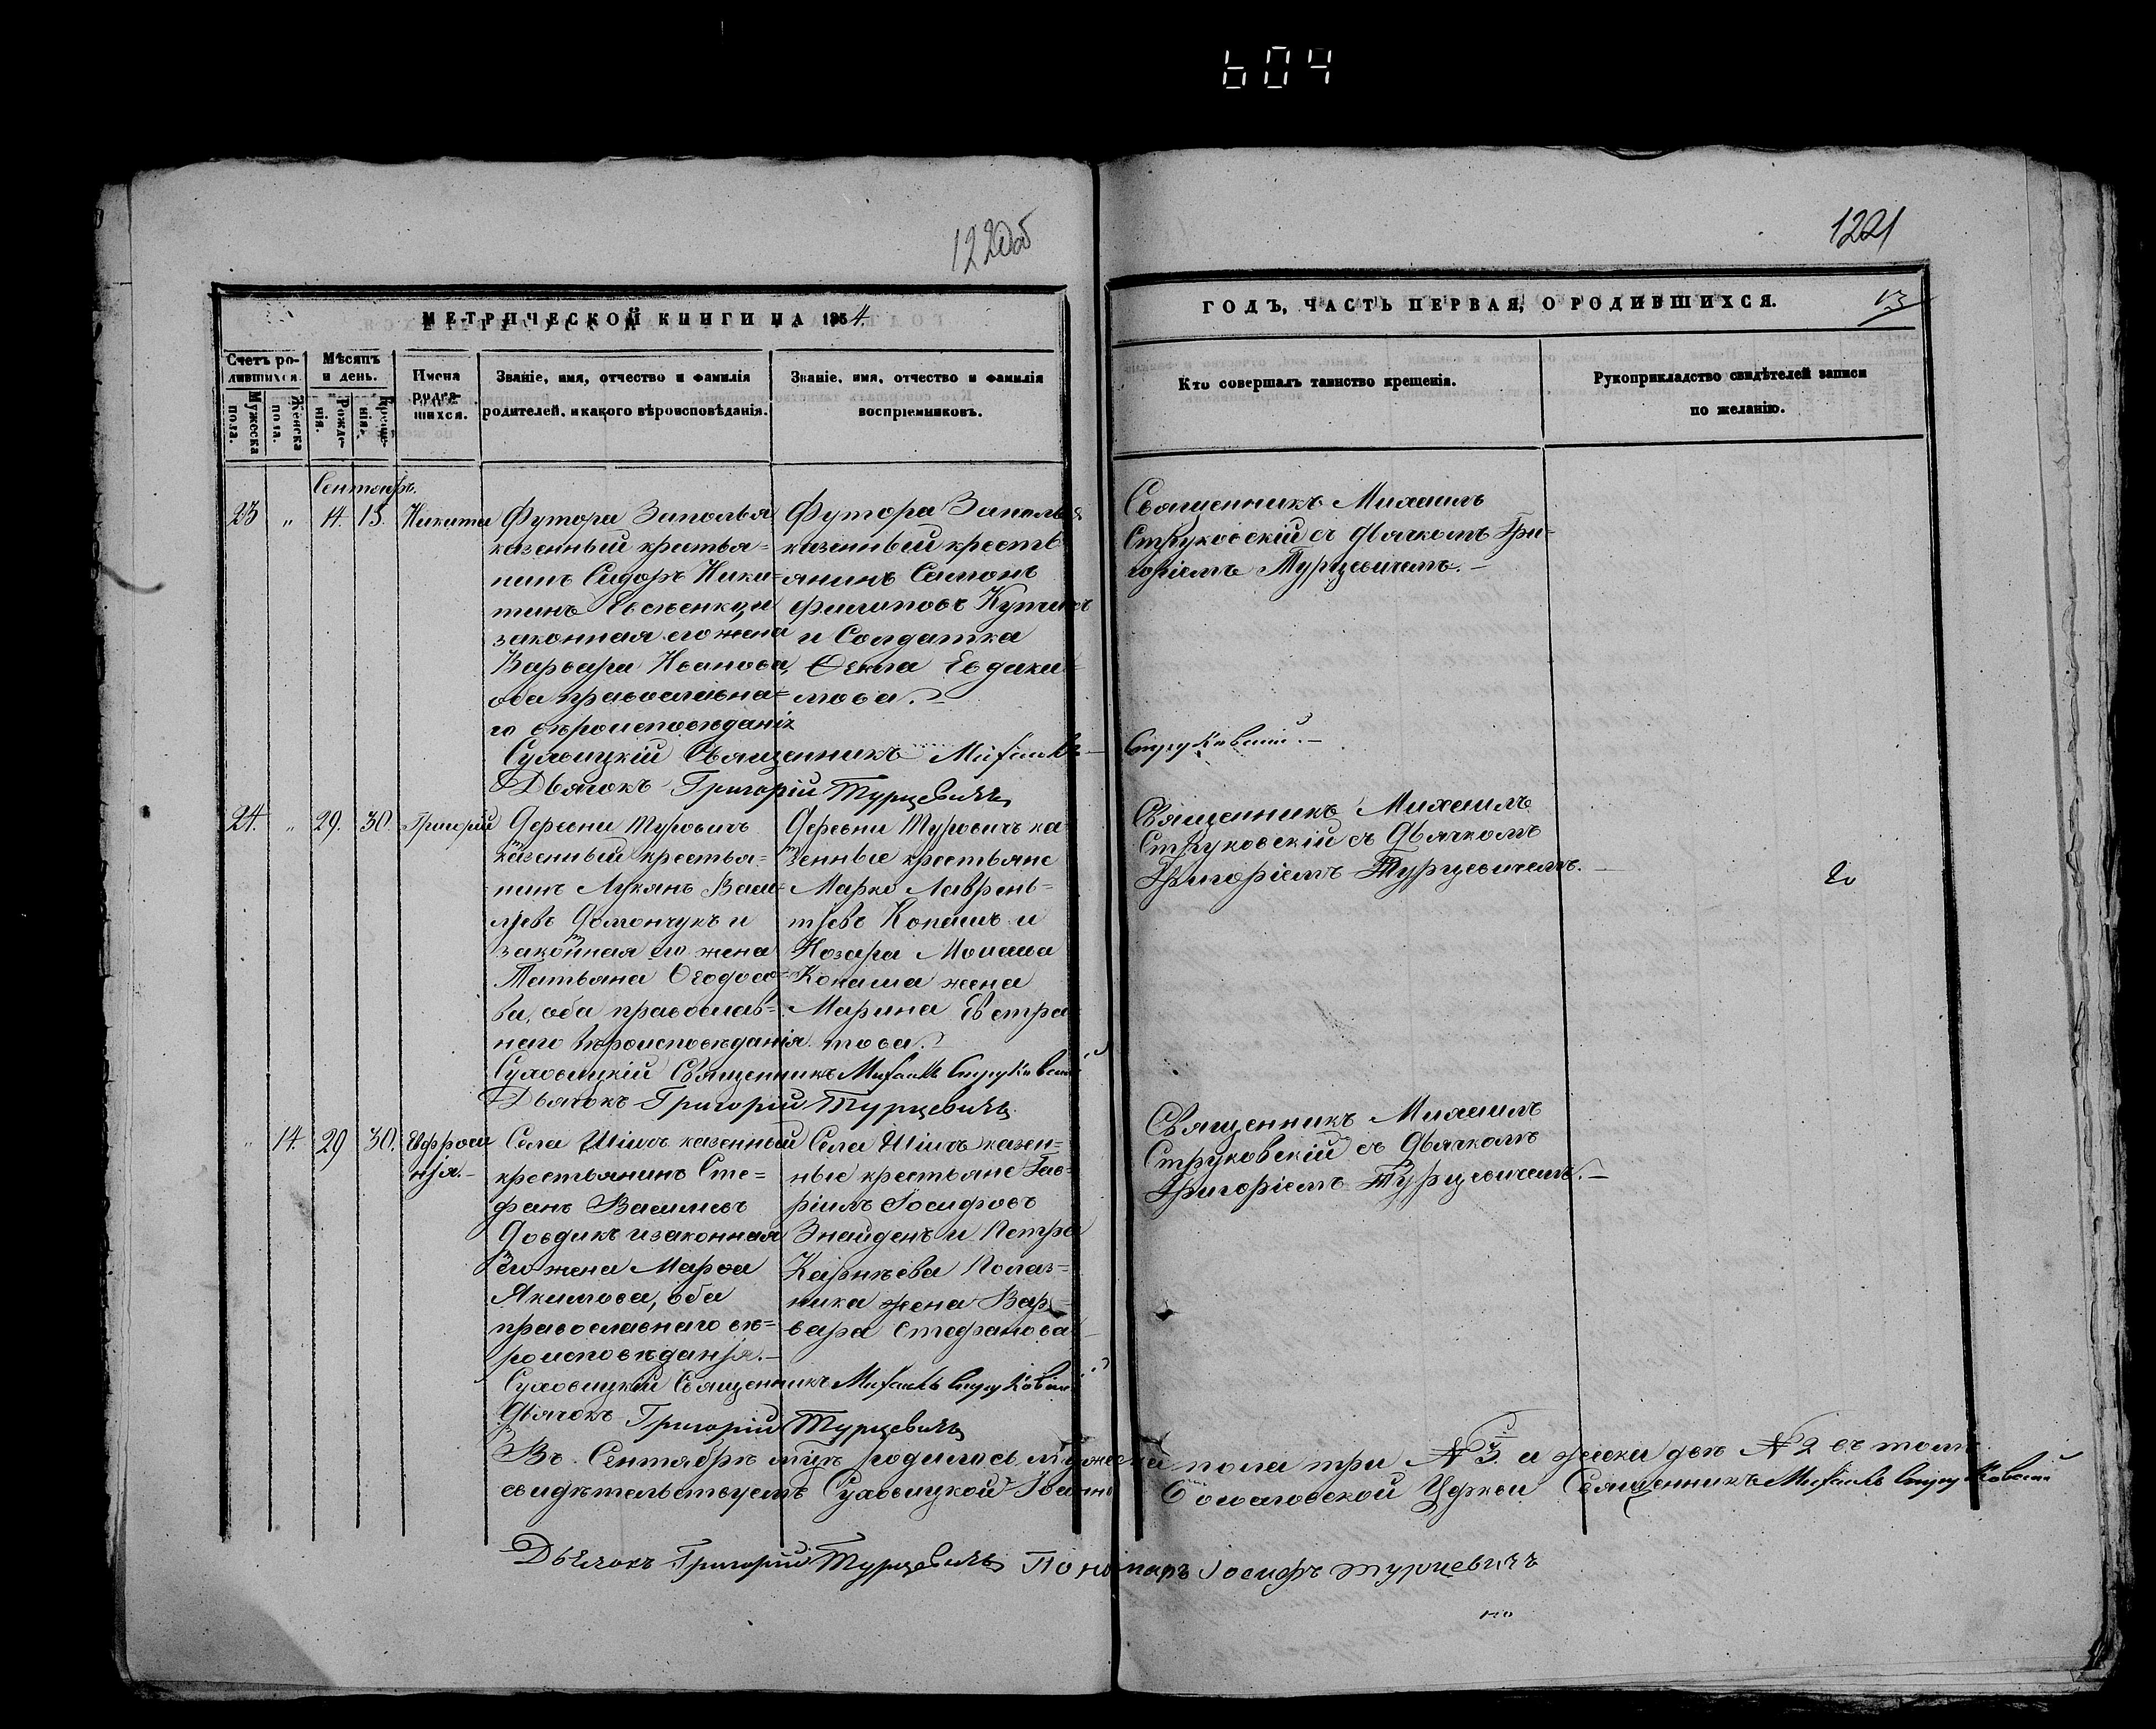 604
1220об
1221
МЕТРИЧЕСКОЙ КНИГИ НА 1854.
ГОДЪ, ЧАСТЬ ПЕРВАЯ, О РОДИВШИХСЯ.
13
Счетъ ро-
дившихся.
Мужеска
пола.
Женска
пола.
Мѣсяцъ
и день.
Рожде-
нія.
Креще-
нія.
Имена
родив-
шихся.
Званіе, имя, отчество и фамилія
родителей, и какого вѣроисповѣданія.
Званіе, имя, отчество и фамилія
воспріемниковъ.
Кто совершалъ таинство крещенія.
Рукоприкладство свидѣтелей записи
по желанію.
Сентябрь.
23 " 14. 15. Никита
Футора Заполья
казенный крестья=
нинъ Сидоръ Ники=
тинъ
законная его жена
Варвара Иванова,
оба православна=
го вѣроисповѣданія
Футора Заполья
казенный кресть
янинъ Самонъ
Филиповъ
и Солдатка
Ѳекла Евдоки=
мова.
Священникъ Михаилъ
Струковскій съ дьячкомъ Гри-
горіемъ Турцевичемъ.
Суховицкій Священникъ Михаилъ Струковскій.
Дьячокъ Григорій Турцевичъ
24. " 29. 30. Григорій
Деревни Туровичъ
казенный крестья=
нинъ Лукянъ Васи=
ліевъ Домончукъ и
законная его жена
Татьяна Ѳеодосо=
ва, оба православ=
наго вѣроисповѣданія.
Деревни Туровичъ ка
зенные крестьяне
Марко Лаврень=
тіевъ Копашъ и
Назара
жена
Марина Евстра
това.
Священникъ Михаилъ
Струковскій съ Дьячкомъ
Григоріемъ Турцевичемъ.
Суховицкій Священникъ Михаилъ Струковскій
Дьячокъ Григорій Турцевичъ
" 14. 29 30. Ефроси
нія.
Села Шіичъ казенный
крестьянинъ Сте=
фанъ Васильевъ
Довдикъ и законная
его жена Марѳа
Якимова, оба
православнаго вѣ=
роисповѣданія.
Села Шіичъ казен=
ные крестьяне Гав=
ріилъ Іосифовъ
Знайденъ и Петра
Карнѣева Полаз=
ника жена Вар=
вара Стефанова
Священникъ Михаилъ
Струковскій съ Дьячкомъ
Григоріемъ Турцевичемъ.
Суховицкій Священникъ Михаилъ Струковскій
Дьячокъ Григорій Турцевичъ
Въ Сентябрѣ м[ѣся]цѣ родилось мужеска пола три № 3. и женска двѣ № 2 въ томъ
свидѣтельствуемъ Суховицкой Іоанно Богословской Церкви Священникъ Михаилъ Струковскій
Дьячокъ Григорій Турцевичъ Пономарь Іосифъ Турцевичъ